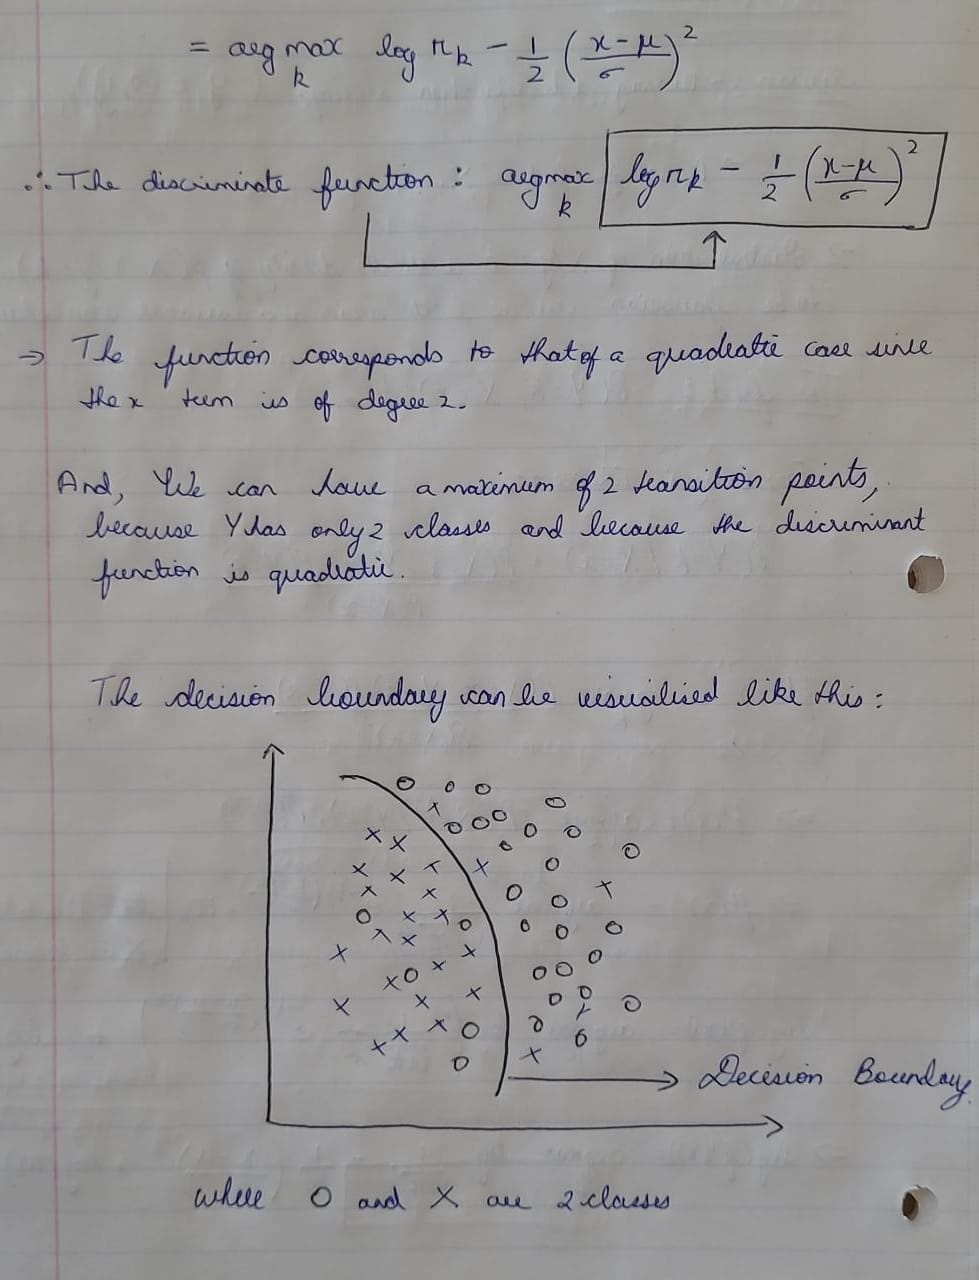 = argmax log πk - 1/2 ((x-μ)/σ)²
k
∴ The discriminate function : argmax log πk - 1/2 ((x-μ)/σ)²
k
⇒ The function corresponds to that of a quadratic case since
the x term is of degree 2.
And, We can have a maximum of 2 transition points,
because Y has only 2 classes and because the discriminant
function is quadratic.
The decision boundary can be visualised like this :
Decision Boundary.
where O and X are 2 classes